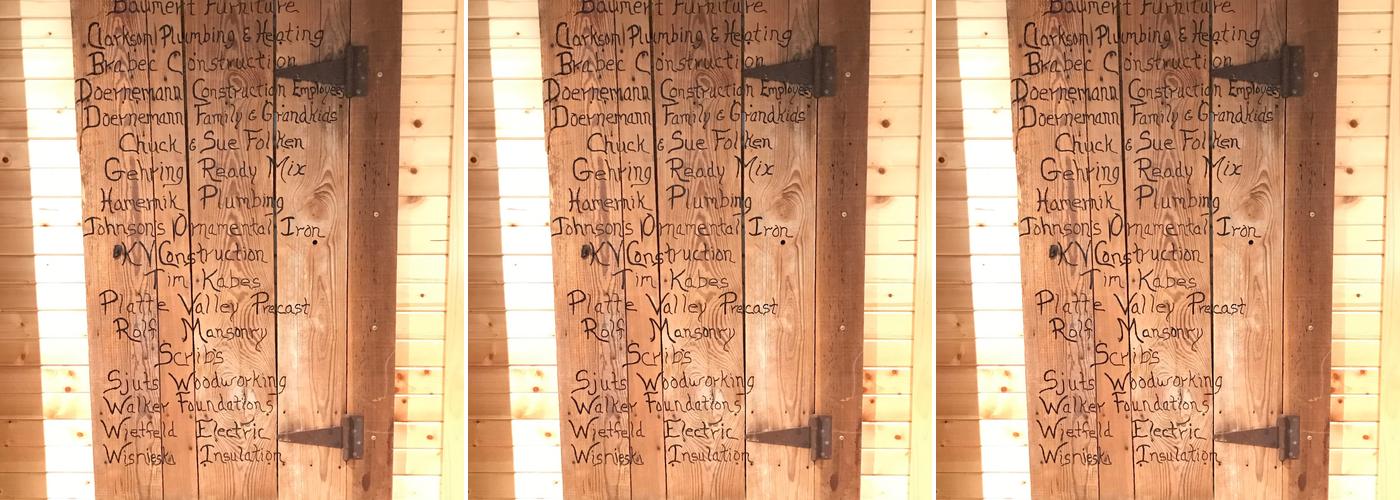 Baumert Furniture
Clarkson Plumbing & Heating
Brabec Construction
Doernemann Construction Employees
Doernemann Family & Grandkids
Chuck & Sue Folken
Gehring Ready Mix
Hamernik Plumbing
Johnson's Ornamental Iron
KV Construction
Tim Kabes
Platte Valley Precast
Rolf Mansonry
Scribs
Sjuts Woodworking
Walker Foundations
Wietfeld Electric
Wisnieski Insulation
Baumert Furniture
Clarkson Plumbing & Heating
Brabec Construction
Doernemann Construction Employees
Doernemann Family & Grandkids
Chuck & Sue Folken
Gehring Ready Mix
Hamernik Plumbing
Johnson's Ornamental Iron
KV Construction
Tim Kabes
Platte Valley Precast
Rolf Mansonry
Scribs
Sjuts Woodworking
Walker Foundations
Wietfeld Electric
Wisnieski Insulation
Baumert Furniture
Clarkson Plumbing & Heating
Brabec Construction
Doernemann Construction Employees
Doernemann Family & Grandkids
Chuck & Sue Folken
Gehring Ready Mix
Hamernik Plumbing
Johnson's Ornamental Iron
KV Construction
Tim Kabes
Platte Valley Precast
Rolf Mansonry
Scribs
Sjuts Woodworking
Walker Foundations
Wietfeld Electric
Wisnieski Insulation